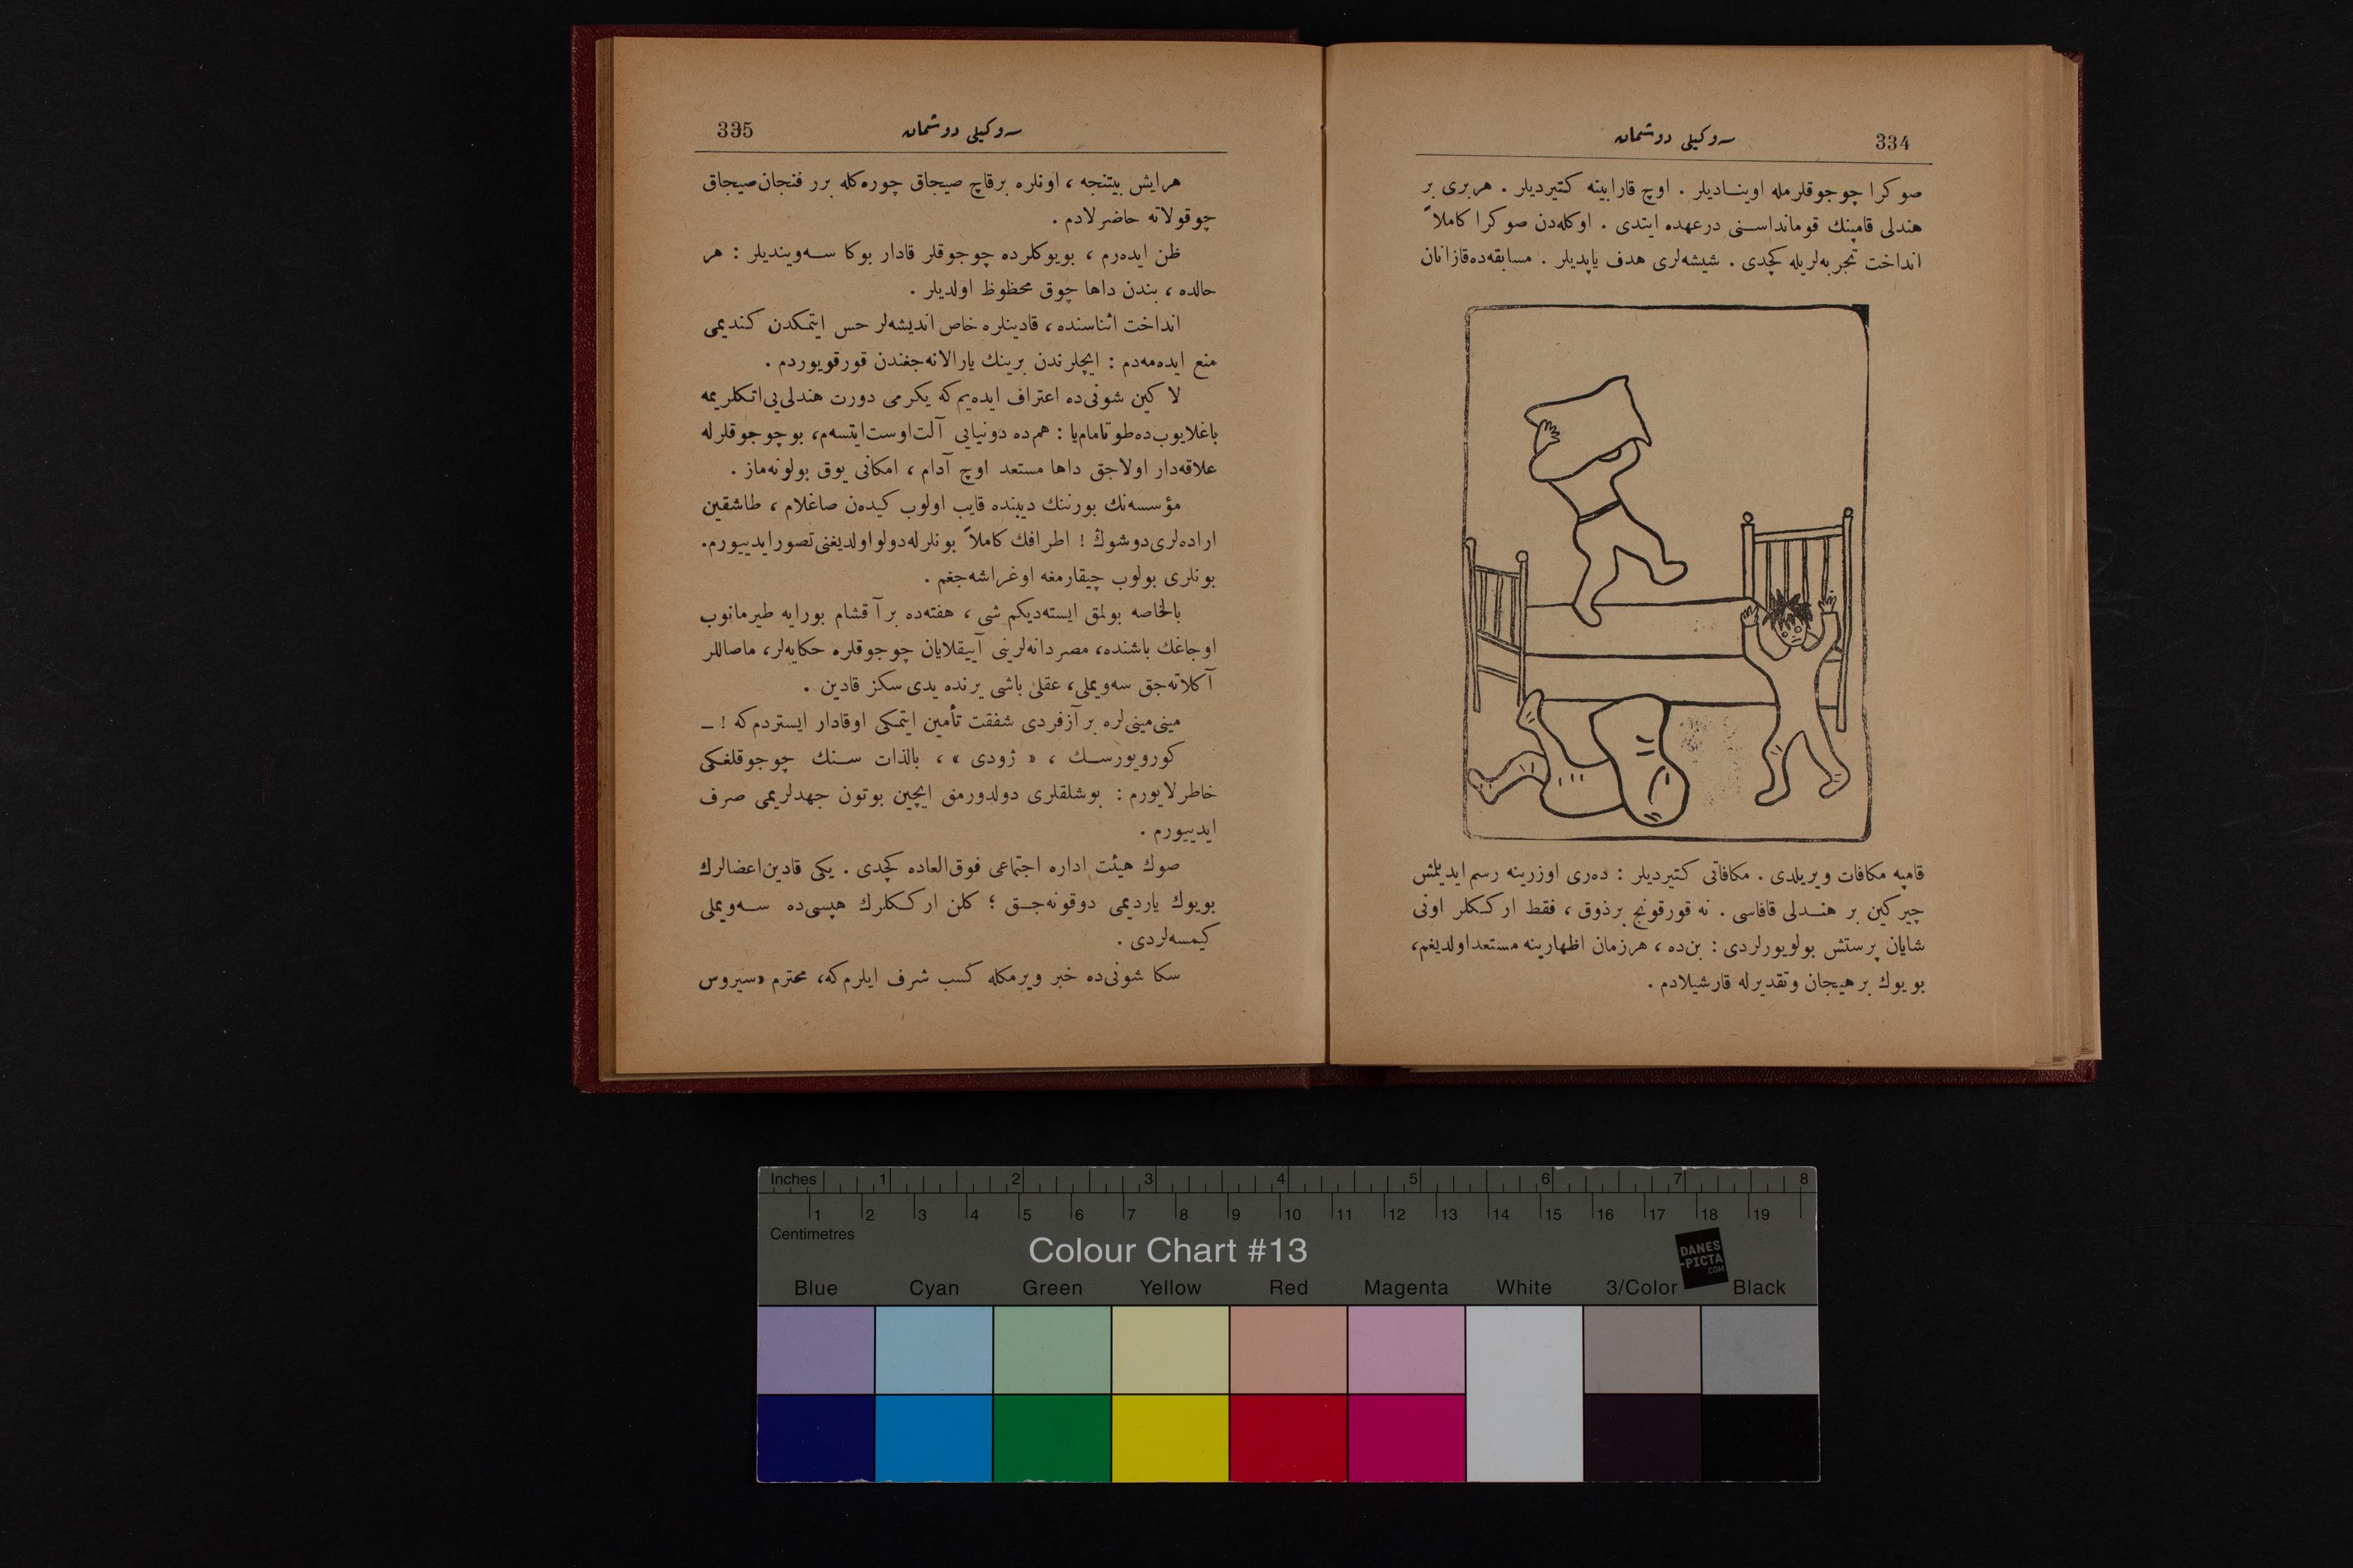 334
سوكیلی دوشمان
صوكرا چوجوقلرمله اوینادیلر . اوچ قارابینه كتیردیلر . هربری بر
هندلی قامپنك قومانداسنی درعهده ایتدی . اوكله‌دن صوكرا كاملاً
انداخت تجربه‌لریله كچدی . شیشه‌لری هدف یاپدیلر . مسابقه‌ده‌قازانان
قامپه مكافات ویریلدی . مكافاتی كتیردیلر : ده‌ری اوزرینه رسم ایدیلمش
چیركین بر هندلی قافاسی . نه قورقونج برذوق ، فقط ارككلر اونی
شایان پرستش بولویورلردی : بن‌ده ، هرزمان اظهارینه مستعداولدیغم،
بویوك برهیجان وتقدیرله قارشیلادم .
335
سوكیلی دوشمان
هرایش بیتنجه ، اونلره برقاچ صیجاق چوره‌كله برر فنجان‌صیجاق
چوقولاته حاضرلادم .
ظن ایده‌رم ، بویوكلرده چوجوقلر قادار بوكا سه‌ویندیلر : هر
حالده ، بندن داها چوق محظوظ اولدیلر .
انداخت اثناسنده ، قادینلره خاص اندیشه‌لر حس ایتمكدن كندیمی
منع ایده‌مه‌دم : ایچلرندن برینك یارالانه‌جغندن قورقویوردم .
لاكین شونی‌ده اعتراف ایده‌یم كه یكرمی دورت هندلی‌یی‌اتكلریمه
باغلایوب‌ده‌طوتامام‌یا : هم‌ده دونیایی آلت‌اوست‌ایتسه‌م، بوچوجوقلرله
علاقه‌دار اولاجق داها مستعد اوچ آدام ، امكانی یوق بولونه‌ماز .
مؤسسه‌نك بورننك دیبنده قایب اولوب كیده‌ن صاغلام ، طاشقین
اراده‌لری‌دوشوڭ ! اطرافك كاملاً بونلرله‌دولواولدیغنی‌تصورایدییورم.
بونلری بولوب چیقارمغه اوغراشه‌جغم .
بالخاصه بولمق ایسته‌دیكم شی ، هفته‌ده برآقشام بورایه طیرمانوب
اوجاغك باشنده، مصردانه‌لرینی آییقلایان چوجوقلره حكایه‌لر، ماصاللر
آكلاته‌جق سه‌ویملی، عقلی باشی یرنده یدی سكز قادین .
مینی‌مینی‌لره برآزفردی شفقت تأمین ایتمكی اوقادار ایستردم‌كه ! ــ
كورویورسك ، « ژودی » ، بالذات سنك چوجوقلغكی
خاطرلایورم : بوشلقلری دولدورمق ایچین بوتون جهدلریمی صرف
ایدییورم .
صوك هیئت اداره اجتماعی فوق‌العاده كچدی . یكی قادین‌اعضالرك
بویوك یاردیمی دوقونه‌جق ؛ كلن ارككلرك هپسی‌ده سه‌ویملی
كیمسه‌لردی .
سكا شونی‌ده خبر ویرمكله كسب شرف ایلرم‌كه، محترم «سیروس
Inches 1 2 3 4 5 6 7 8
1 2 3 4 5 6 7 8 9 10 11 12 13 14 15 16 17 18 19
Centimetres
Colour Chart #13
DANES
-PICTA
.COM
Blue Cyan Green Yellow Red Magenta White 3/Color Black